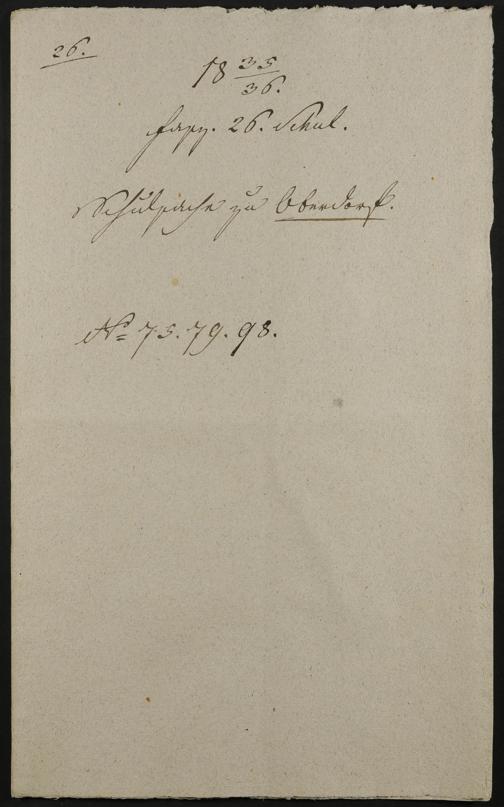 26.
18 35/36.
Fasz. 26. Schul.
Schulsache zu Oberdorf.
No 75. 79. 98.